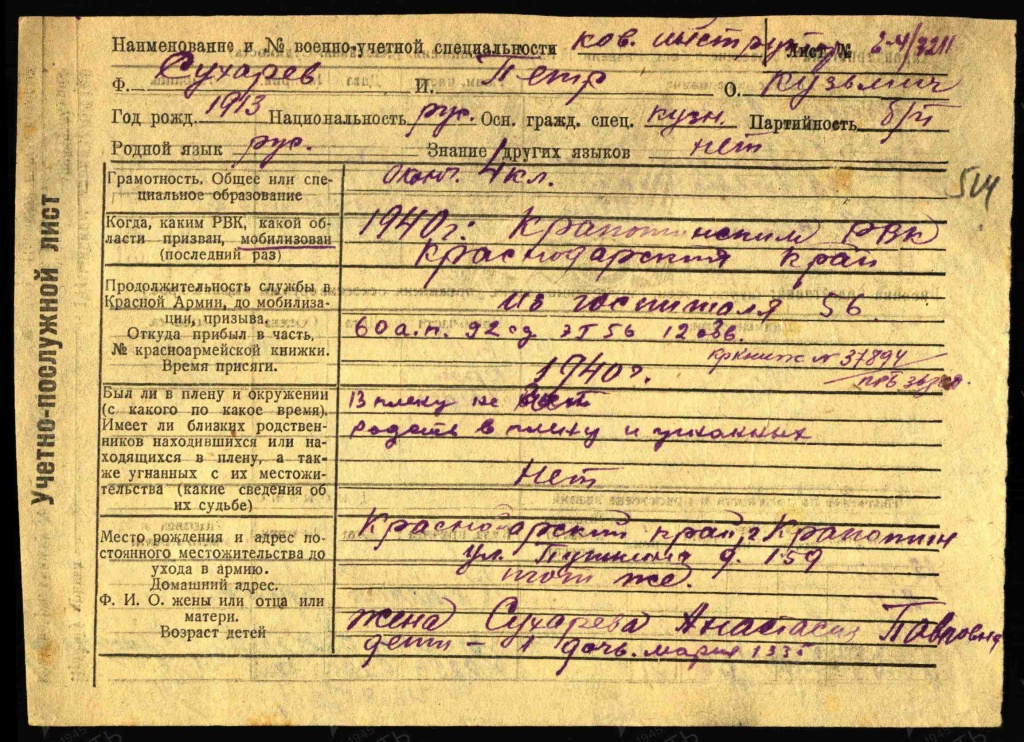 Учетно-послужной лист
Наименование и № военно-учетной специальности ков. инструктор Лист №
Ф. Сухарев И. Петр О. Кузьмич
Год рожд. 1913 Национальность рус. Осн. гражд. спец. кузн. Партийность б/п
Родной язык рус. Знание других языков нет
Грамотность. Общее или спе-
циальное образование
оконч. 4 кл.
Когда, каким РВК, какой об-
ласти призван, мобилизован
(последний раз)
1940 г. Кропоткинским РВК
Краснодарский край
Продолжительность службы в
Красной Армии, до мобилиза-
ции, призыва.
Откуда прибыл в часть,
№ красноармейской книжки.
Время присяги.
Из госпиталя 56
60 а.п. 92 сд
кр книжк № 37894
1940 г.
Был ли в плену и окружении
(с какого по какое время).
Имеет ли близких родствен-
ников находившихся или на-
ходящихся в плену, а так-
же угнанных с их местожи-
тельства (какие сведения об
их судьбе)
В плену не
родств в плену и угнанных
Нет
Место рождения и адрес по-
стоянного местожительства до
ухода в армию.
Домашний адрес.
Ф. И. О. жены или отца или
матери.
Возраст детей
Краснодарский край, г Кропоткин
ул. Пушкина д. 159
тот же.
жена Сухарева Анастасия Павловна
дети - 1 дочь. мария